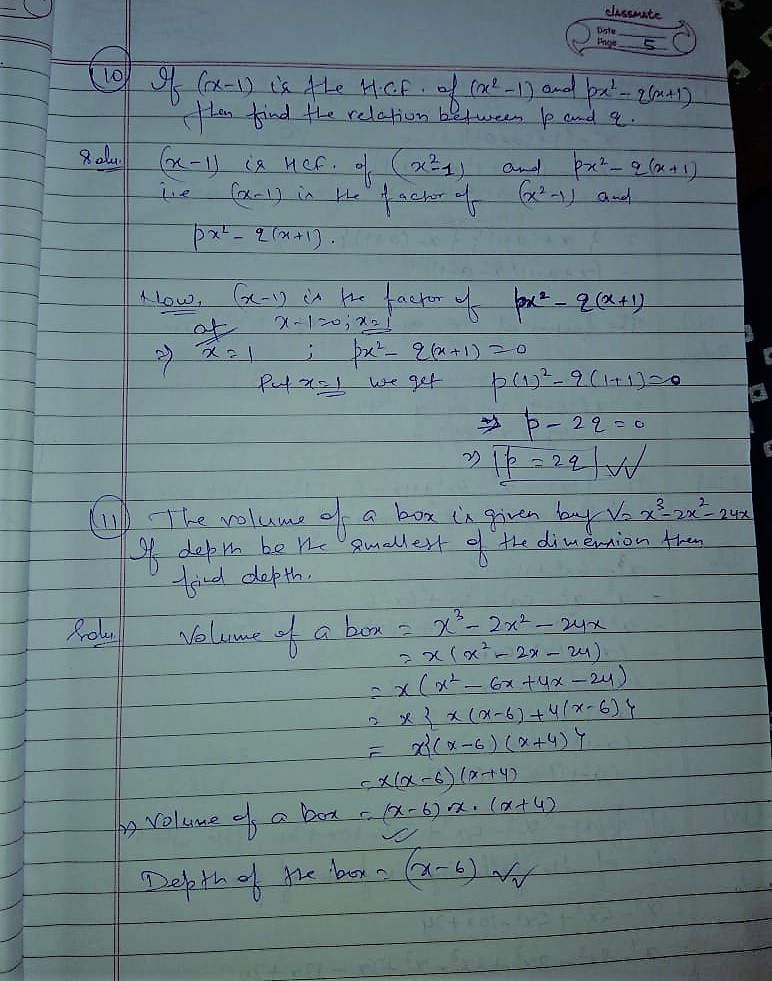 classmate
Date
Page 5
(10) If (x-1) is the H.C.F. of (x²-1) and px² - q(x+1)
then find the relation between p and q.
Solu. (x-1) is HCF. of (x²-1) and px² - q(x+1)
i.e (x-1) is the factor of (x²-1) and
px² - q(x+1).
Now, (x-1) is the factor of px² - q(x+1)
at x-1=0; x=1
⇒ x=1 ; px² - q(x+1) = 0
Put x=1 we get p(1)² - q(1+1)=0
⇒ p - 2q = 0
⇒ p = 2q
(11) The volume of a box is given buy V= x³-2x²-24x
If depth be the smallest of the dimension then
find depth.
Solu. Volume of a box = x³ - 2x² - 24x
= x(x² - 2x - 24)
= x(x² - 6x + 4x - 24)
= x{x(x-6)+4(x-6)}
= x{(x-6)(x+4)}
= x(x-6)(x+4)
⇒ Volume of a box = (x-6)·x·(x+4)
Depth of the box = (x-6)